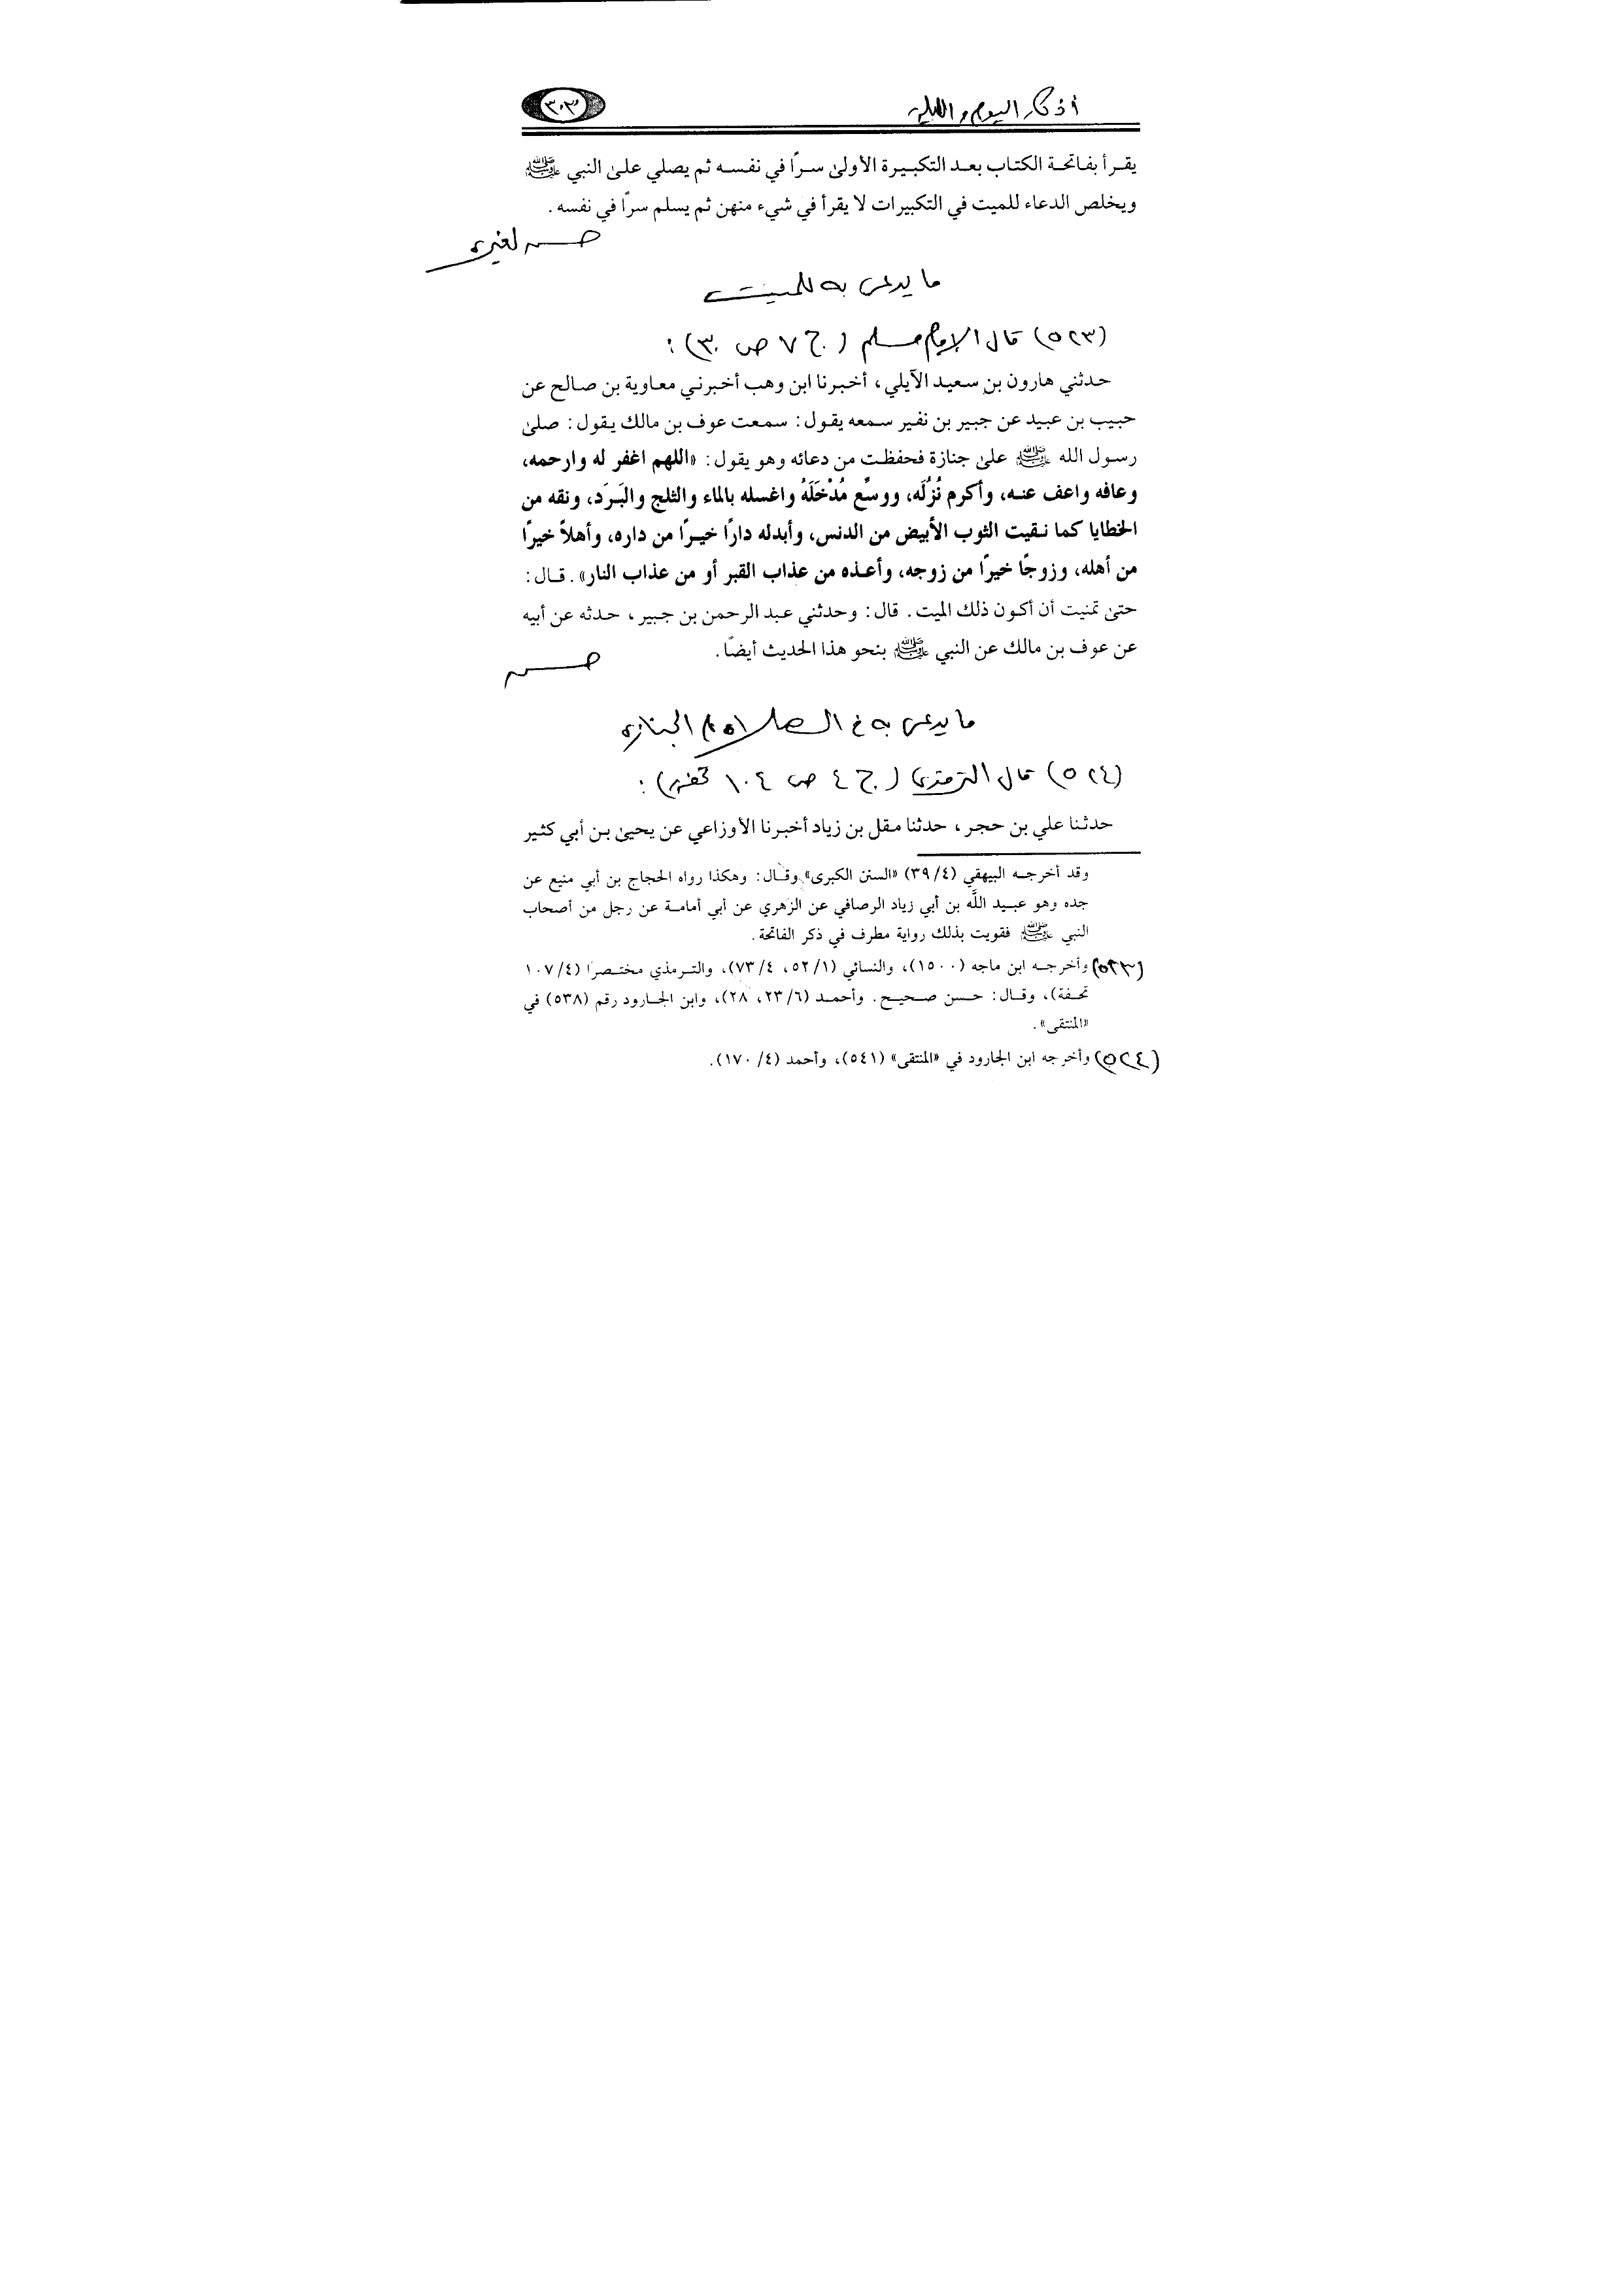 أذكار اليوم والليلة
٣٠٣
يقرأ بفاتحة الكتاب بعد التكبيرة الأولىٰ سرًا في نفسه ثم يصلي علىٰ النبي ﷺ
ويخلص الدعاء للميت في التكبيرات لا يقرأ في شيء منهن ثم يسلم سرًا في نفسه .
حسن لغيره
ما يدعى به للميت
(٥٢٣) قال الإمام مسلم (ج ٧ ص ٣٠) :
حدثني هارون بن سعيد الآيلي ، أخبرنا ابن وهب أخبرني معاوية بن صالح عن
حبيب بن عبيد عن جبير بن نفير سمعه يقول : سمعت عوف بن مالك يقول : صلىٰ
رسول الله ﷺ علىٰ جنازة فحفظت من دعائه وهو يقول : «اللهم اغفر له وارحمه،
وعافه واعف عنه، وأكرم نُزُلَه، ووسِّع مُدْخَلَهُ واغسله بالماء والثلج والبَرَد، ونقه من
الخطايا كما نقيت الثوب الأبيض من الدنس، وأبدله دارًا خيرًا من داره، وأهلاً خيرًا
من أهله، وزوجًا خيرًا من زوجه، وأعذه من عذاب القبر أو من عذاب النار» . قال :
حتىٰ تمنيت أن أكون ذلك الميت . قال : وحدثني عبد الرحمن بن جبير ، حدثه عن أبيه
عن عوف بن مالك عن النبي ﷺ بنحو هذا الحديث أيضًا .
حسن
ما يدعى به في الصلاة على الجنازة
(٥٢٤) قال الترمذي (ج ٤ ص ١٠٤ تحفة) :
حدثنا علي بن حجر ، حدثنا مقل بن زياد أخبرنا الأوزاعي عن يحيىٰ بن أبي كثير
وقد أخرجه البيهقي (٣٩/٤) «السنن الكبرى» وقال : وهكذا رواه الحجاج بن أبي منيع عن
جده وهو عبيد اللَّه بن أبي زياد الرصافي عن الزهري عن أبي أمامة عن رجل من أصحاب
النبي ﷺ فقويت بذلك رواية مطرف في ذكر الفاتحة .
(٥٢٣) وأخرجه ابن ماجه (١٥٠٠)، والنسائي (٥٢/١، ٧٣/٤)، والترمذي مختصرًا (١٠٧/٤
تحفة)، وقال : حسن صحيح . وأحمد (٢٣/٦، ٢٨)، وابن الجارود رقم (٥٣٨) في
«المنتقى» .
(٥٢٤) وأخرجه ابن الجارود في «المنتقى» (٥٤١)، وأحمد (١٧٠/٤).